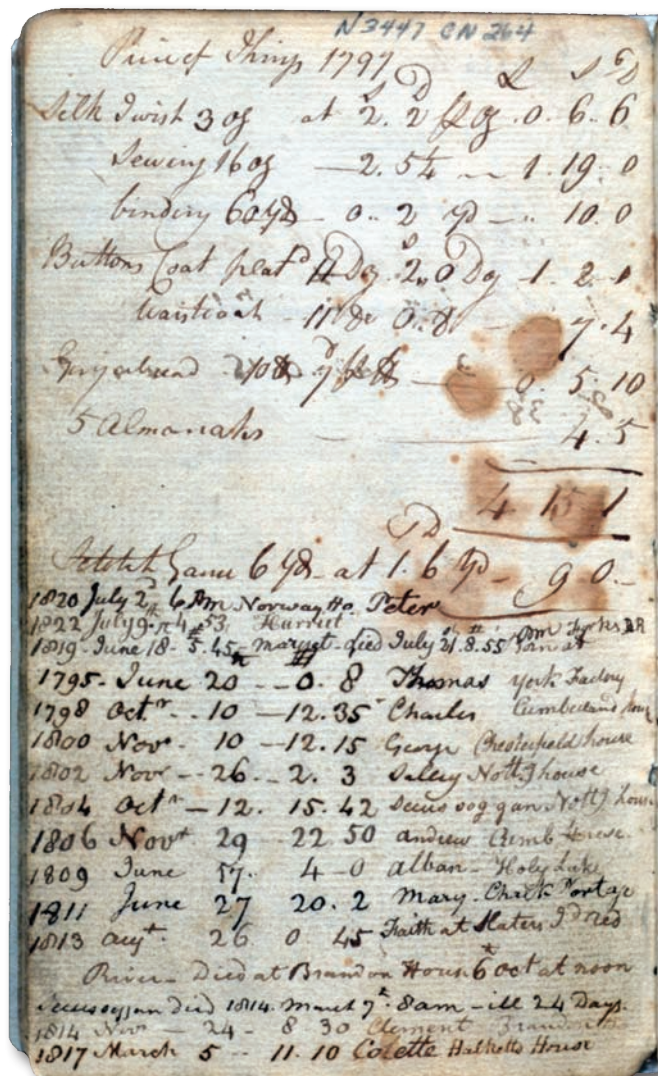 N3447 CN 264
Price of Things 1797
S D £ S D
Silk Twist 3 oz at 2. 2 p oz . 0. 6. 6
Sewing 16 oz — 2. 5¼ — 1. 19. 0
binding 60 yds - 0.. 2 yd — .. 10. 0
Buttons Coat plat^d 11 Dz 2. 0 Dz - 1. 2 -
Waistcoat - 11 Do 0. 8 - 7. 4
Gingerbread 10 lb 7 p lb — 0. 5. 10
5 Almanaks — 4. 5
4 15 1
Scotch Ganu 6 yds at 1. 6 yd - 9 - 0 -
1820 July 2^d 6 Am Norway Ho. Peter
1822 July 9. 4. 53. Harriet
1819 - June 18 - 5. 45 - margret - died July 21. 8. 55 Am Forks RR
Born at
1795 - June 20 - - 0. 8 Thomas york Factory
1798 Oct.^r - . 10 - 12. 35 Charles Cumberland house
1800 Nov^r - 10 - 12. 15 George Chesterfield house
1802 Nov^r - - 26 - . 2. 3 Salley Nottg house
1804 Oct^r - 12. 15. 42 Secus sog gan Nottg house
1806 Nov^r 29 - 22 50 andrew Cumb House
1809 June 57. 4 - 0 alban - Holy Lake
1811 June 27 20. 2 Mary - Chalk Portage
1813 aug^t. 26. 0. 45 Faith at Slaters Id red
River - Died at Brandon House 6 oct at noon
Secussoggan died 1814. March 7^th. 8am - ill 24 Days.
1814 Nov^r - 24 - 8 30 Clement Brandon
1817 March 5 - - 11. 10 Colette Halketts House